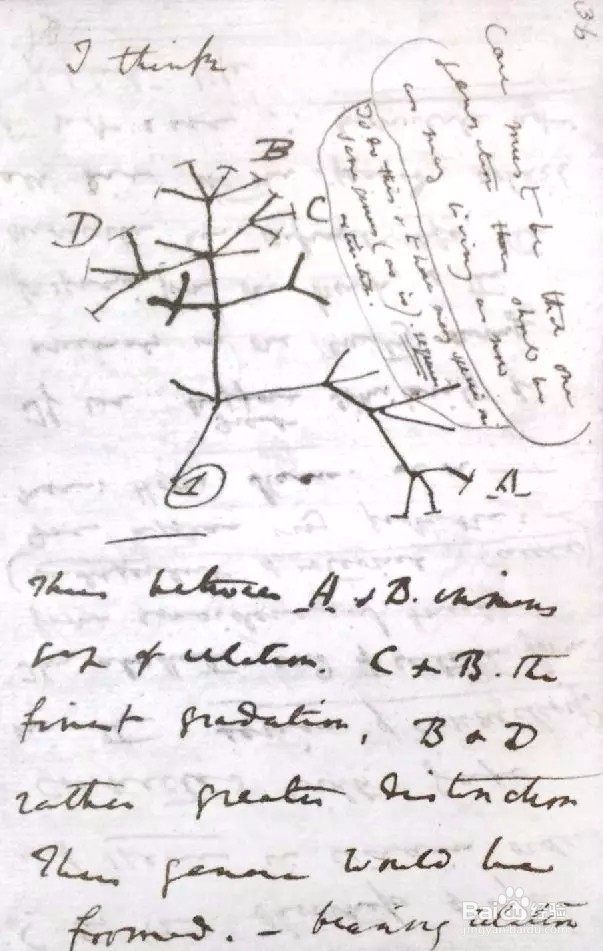 36
I think
Case must be that one
generation then should be
as many living as now
To do this & to have many species in
same genus (as is). requires
extinction.
B
C
D
A
1
Thus between A & B. immense
gap of relation. C & B. the
finest gradation, B & D
rather greater distinction
Thus genera would be
formed. — bearing relation
Baidu 经验
jingyan.baidu.com